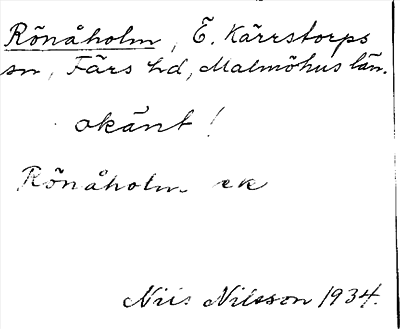 Rönåholm, Ö. Kärrstorps
sn, Färs hd, Malmöhus län.
okänt!
Rönåholm ek
Nils Nilsson 1934.